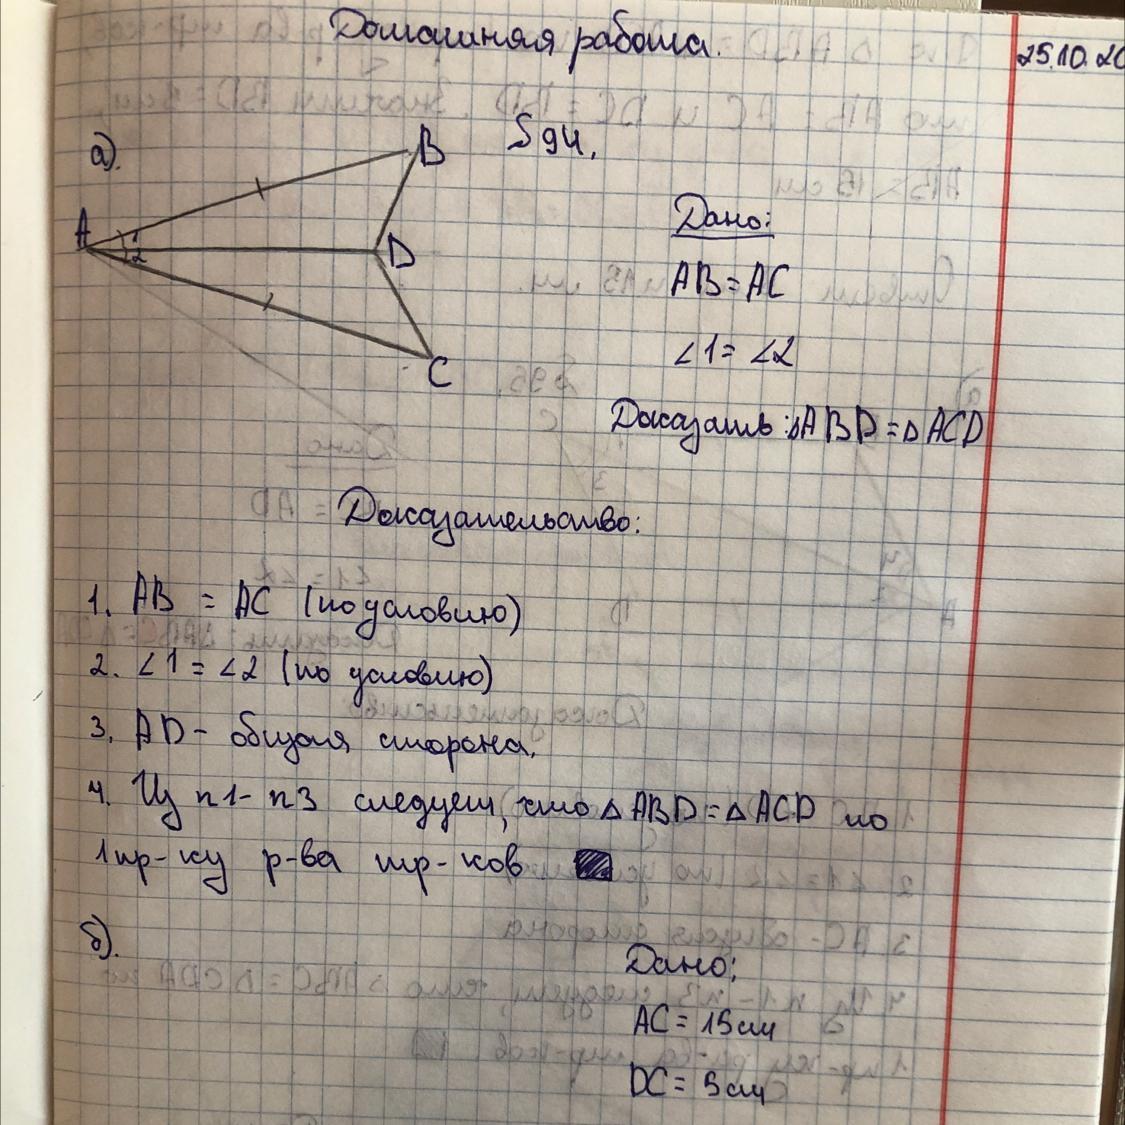 Домашняя работа.
25.10.20
а).
S 94.
B
A
1
2
D
C
Дано:
AB = AC
∠1 = ∠2
Доказать: ΔABD = ΔACD
Доказательство:
1. AB = AC (по условию)
2. ∠1 = ∠2 (по условию)
3. AD - общая сторона.
4. Из п1 - п3 следует, что Δ ABD = Δ ACD по
1 пр-ку р-ва тр-ков
б).
Дано;
AC = 15 см
DC = 5 см